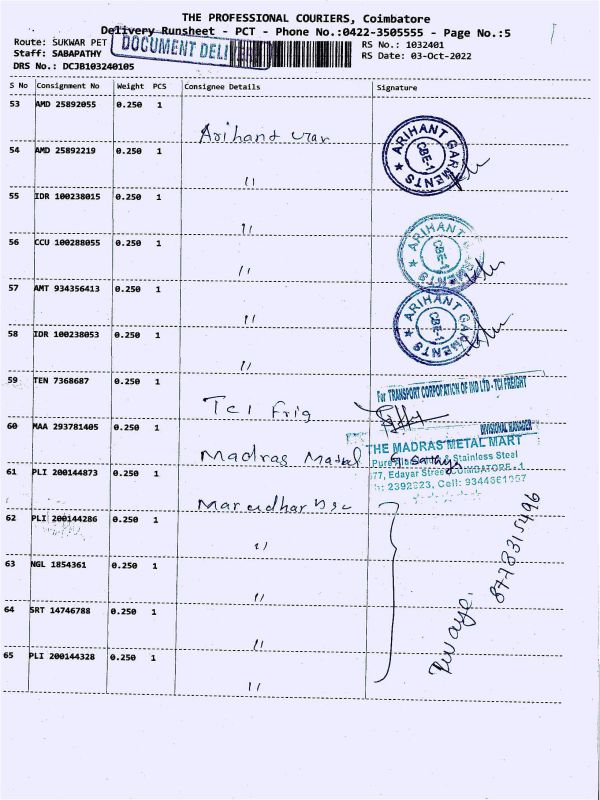 THE PROFESSIONAL COURIERS, Coimbatore
Delivery Runsheet - PCT - Phone No.:0422-3505555 - Page No.:5
Route: SUKWAR PET
DOCUMENT DELI
RS No.: 1032401
Staff: SABAPATHY
RS Date: 03-Oct-2022
DRS No.: DCJB103240105
S No Consignment No Weight PCS Consignee Details Signature
53 AMD 25892055 0.250 1 Arihant
ARIHANT GARMENTS CBE-1
54 AMD 25892219 0.250 1 "
55 IDR 100238015 0.250 1 "
56 CCU 100288055 0.250 1 "
ARIHANT GARMENTS CBE-1
57 AMT 934356413 0.250 1 "
ARIHANT GARMENTS CBE-1
58 IDR 100238053 0.250 1 "
59 TEN 7368687 0.250 1 TCI
For TRANSPORT CORPORATION OF IND LTD - TCI FREIGHT
60 MAA 293781405 0.250 1 Madras Metal
DIVISIONAL MANAGER
THE MADRAS METAL MART
& Stainless Steel
77, Edayar Street, COIMBATORE - 1
61 PLI 200144873 0.250 1 Marudhar
62 PLI 200144286 0.250 1 "
63 NGL 1854361 0.250 1 "
64 SRT 14746788 0.250 1 "
65 PLI 200144328 0.250 1 "
8778315496